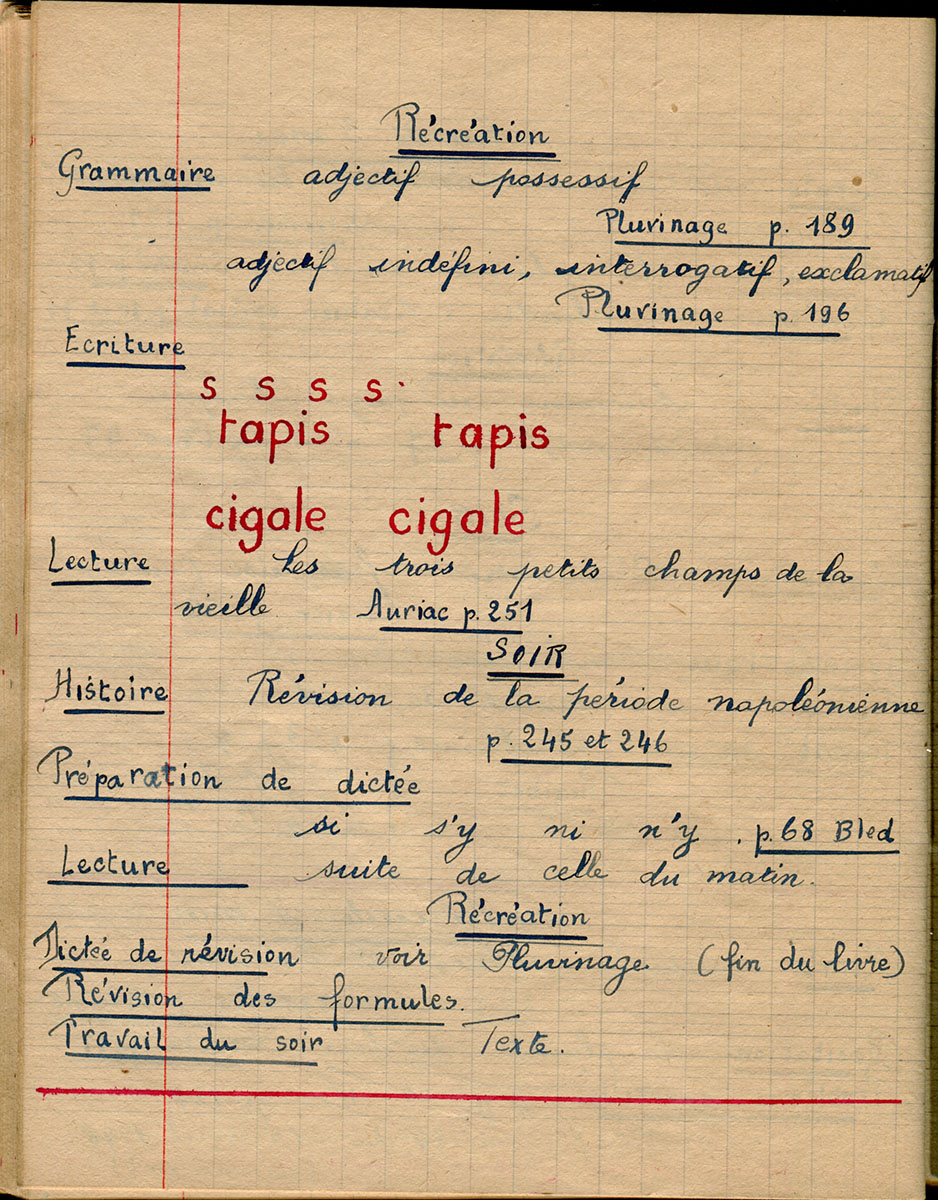 Récréation
Grammaire adjectif possessif
Pluvinage p. 189
adjectif indéfini, interrogatif, exclamatif
Pluvinage p. 196
Ecriture
s s s s
tapis tapis
cigale cigale
Lecture Les trois petits champs de la
vieille Auriac p. 251
SOIR
Histoire Révision de la période napoléonienne
p. 245 et 246
Préparation de dictée
si s'y ni n'y . p. 68 Bled
Lecture suite de celle du matin.
Récréation
Dictée de révision voir Pluvinage (fin du livre)
Révision des formules.
Travail du soir Texte.